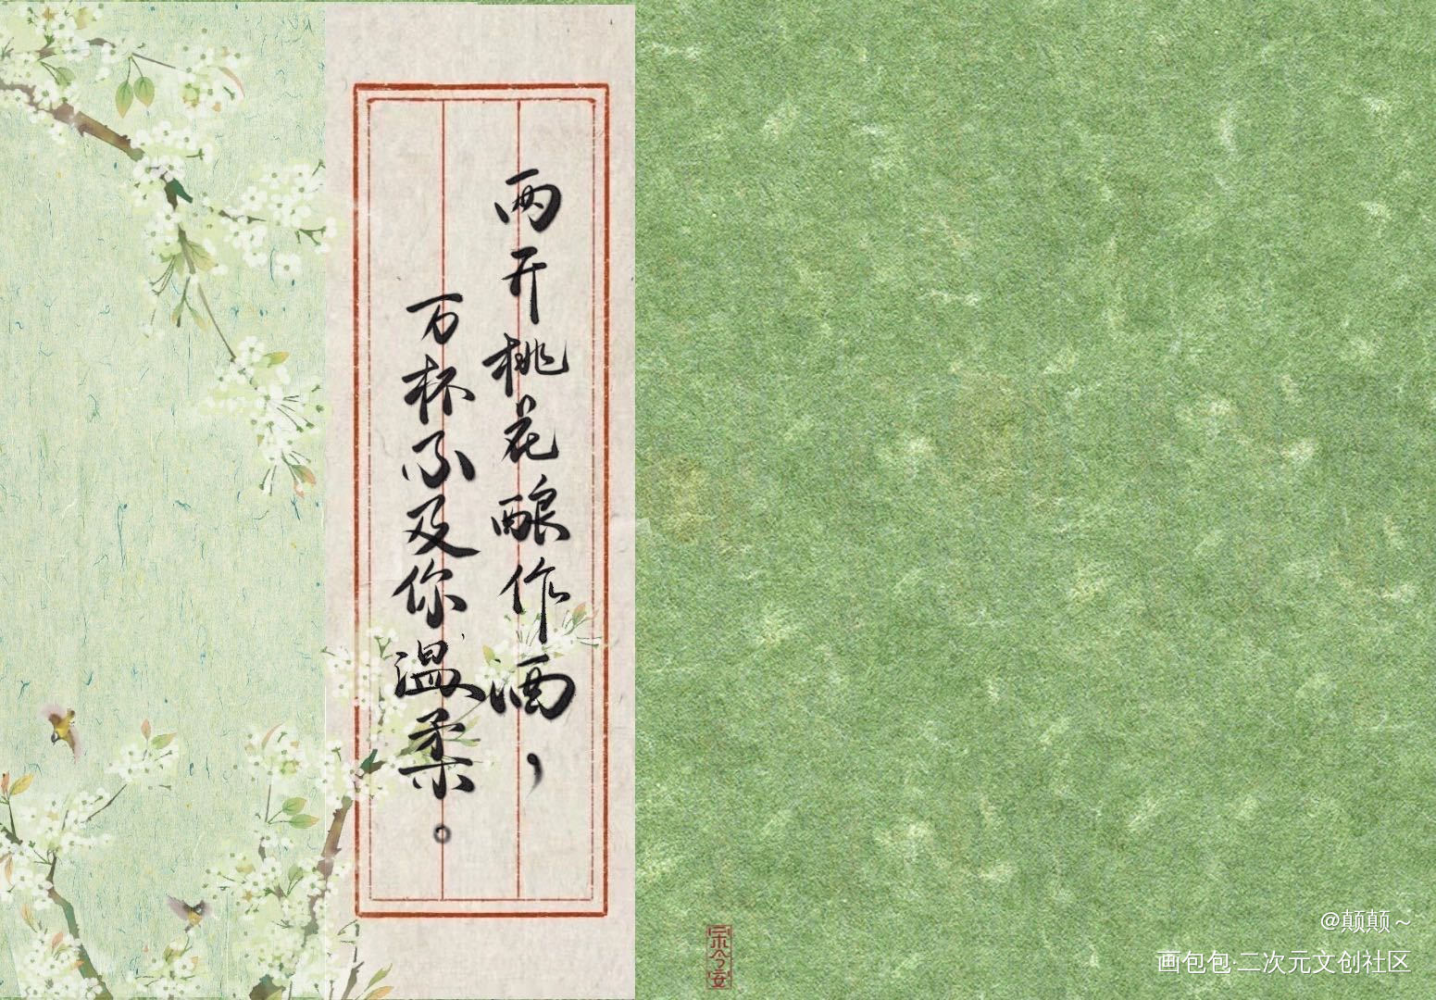 两开桃花酿作酒，
万杯不及你温柔。
@颠颠～
画包包·二次元文创社区